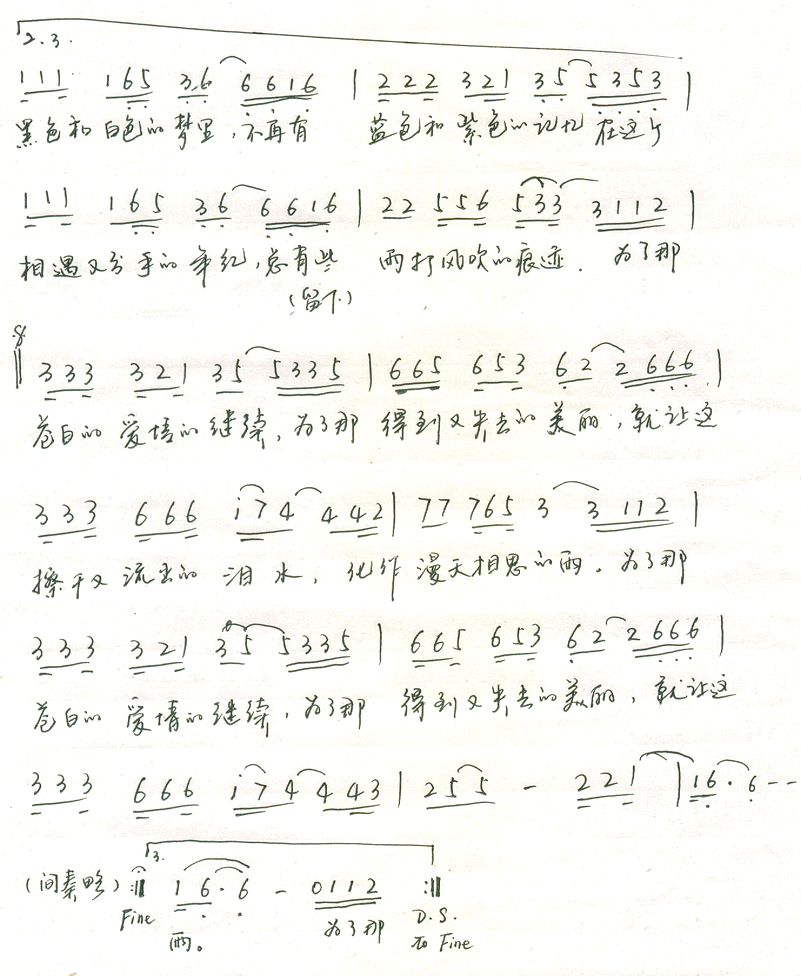 2.3.
1 1 1 1 6 5 3 6 6 6 1 6 | 2 2 2 3 2 1 3 5 5 3 5 3 |
黑色和 白色的 梦里,不再有 蓝色和 紫色的记忆 在这个
1 1 1 1 6 5 3 6 6 6 1 6 | 2 2 5 5 6 5 3 3 3 1 1 2 |
相遇又分手的年纪,总有些 雨打风吹的痕迹. 为了那
(留下)
3 3 3 3 2 1 3 5 5 3 3 5 | 6 6 5 6 5 3 6 2 2 6 6 6 |
苍白的 爱情的继续,为了那 得到又失去的美丽,就让这
3 3 3 6 6 6 i 7 4 4 4 2 | 7 7 7 6 5 3 3 1 1 2 |
擦干又 流出的 泪水, 化作 漫天相思的雨。为了那
3 3 3 3 2 1 3 5 5 3 3 5 | 6 6 5 6 5 3 6 2 2 6 6 6 |
苍白的 爱情的继续,为了那 得到又失去的美丽,就让这
3 3 3 6 6 6 i 7 4 4 4 3 | 2 5 5 - 2 2 1 | 1 6 · 6 - -
3.
(间奏略) :|| 1 6 · 6 - 0 1 1 2 :||
Fine 雨。 为了那 D.S.
to Fine